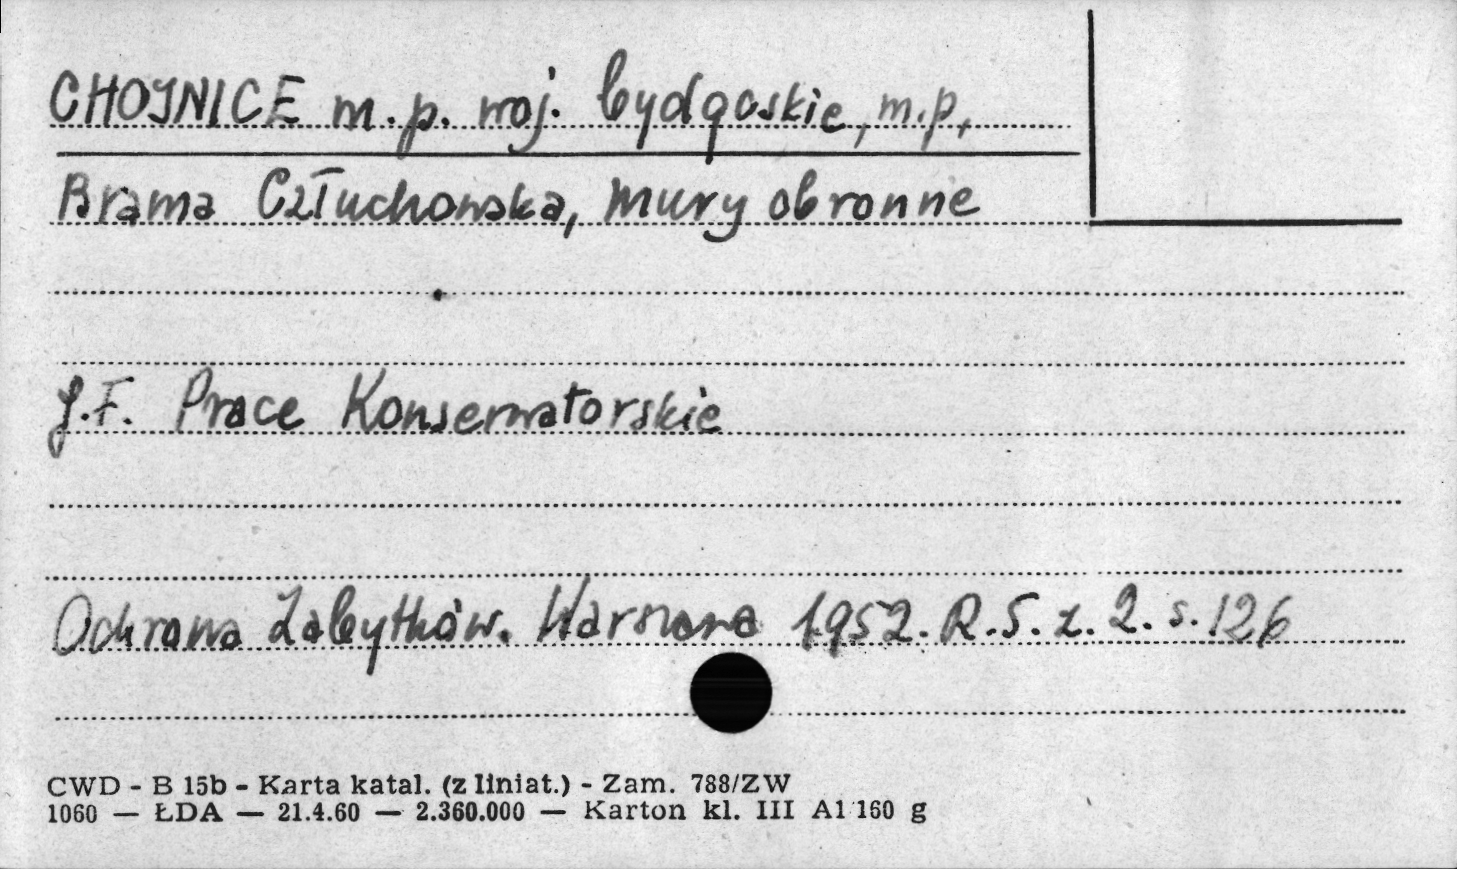 CHOJNICE m.p. woj. bydgoskie, m.p,
Brama Człuchowska, mury obronne
J.F. Prace Konserwatorskie
Ochrona Zabytków. Warszawa 1952. R.5. z. 2. s. 126
CWD - B 15b - Karta katal. (z liniat.) - Zam. 788/ZW
1060 — ŁDA — 21.4.60 — 2.360.000 — Karton kl. III A1 160 g